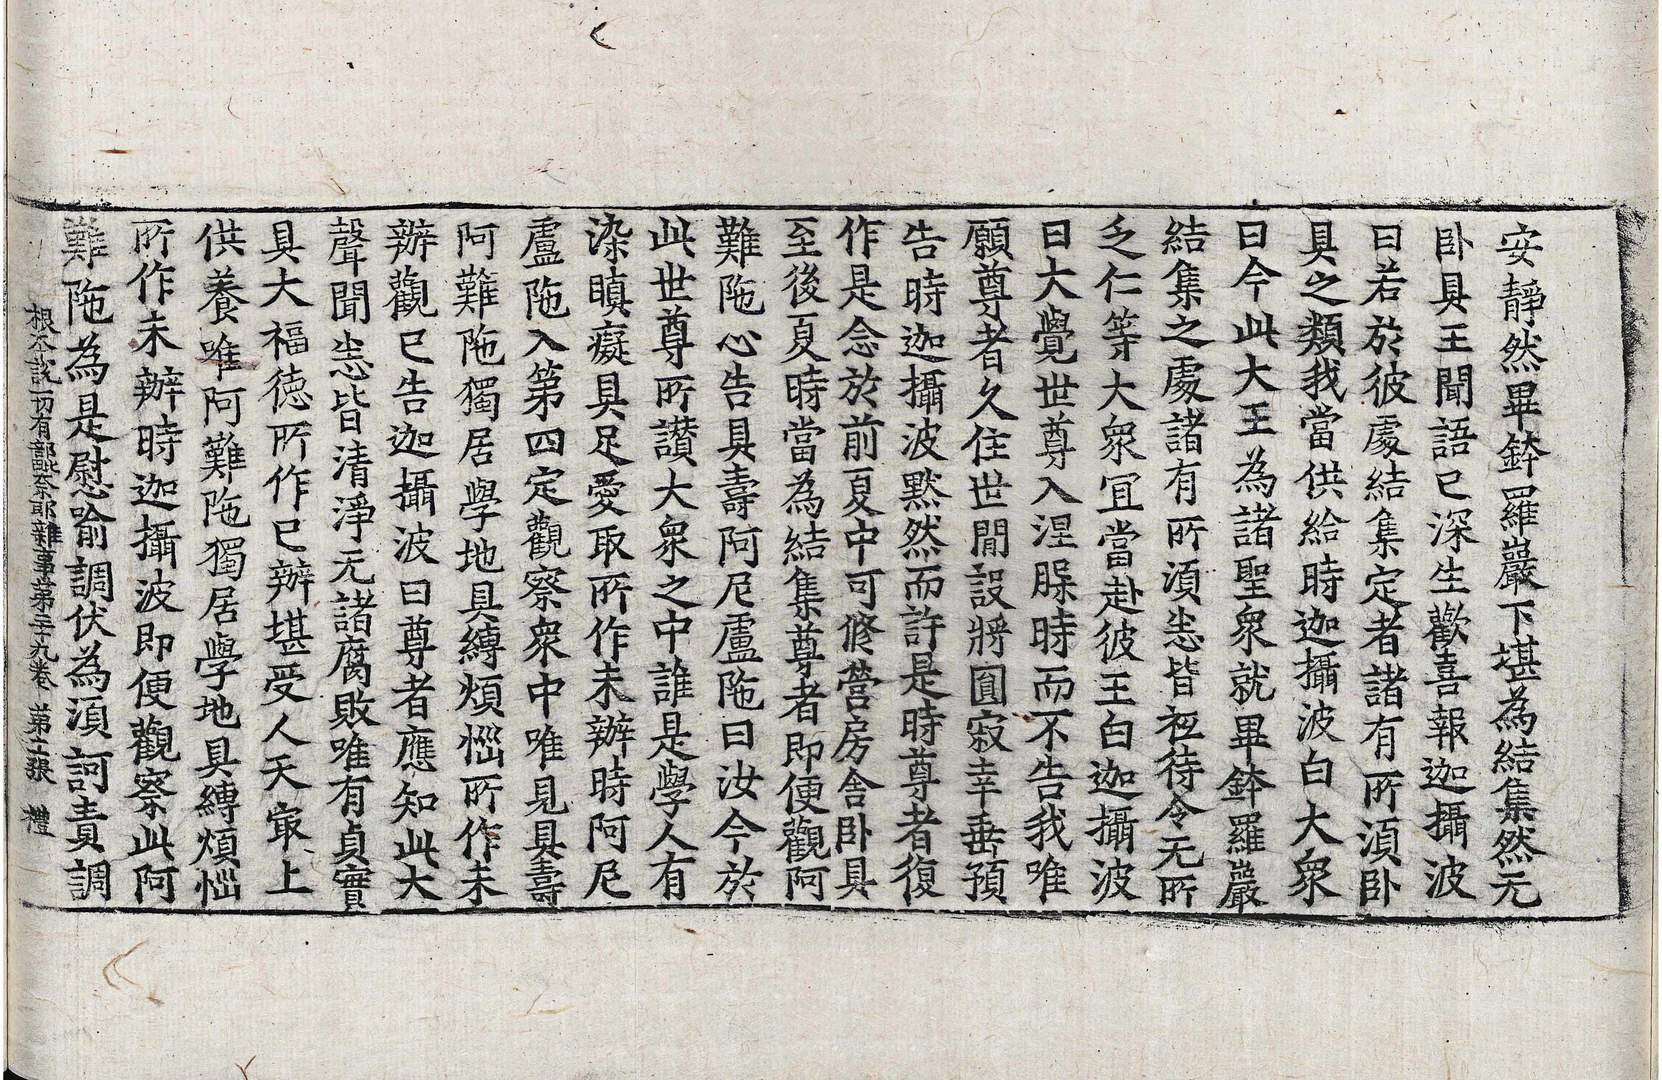 安靜然畢鉢羅巖下堪為結集然无
卧具王聞語已深生歡喜報迦攝波
曰若於彼處結集定者諸有所湏卧
具之類我當供給時迦攝波白大衆
曰今此大王為諸聖衆就畢鉢羅巖
結集之處諸有所湏悉皆祗待令无所
乏仁等大衆宜當赴彼王白迦攝波
曰大覺世尊入涅槃時而不告我唯
願尊者久住世間設將圓寂幸垂預
告時迦攝波黙然而許是時尊者復
作是念於前夏中可修營房舍卧具
至後夏時當為結集尊者即便觀阿
難陁心告具壽阿尼盧陁曰汝今於
此世尊所讃大衆之中誰是學人有
染瞋癡具足愛取所作未辦時阿尼
盧陁入第四定觀察衆中唯見具壽
阿難陁獨居學地具縛煩惱所作未
辦觀已告迦攝波曰尊者應知此大
聲聞悉皆清淨无諸腐敗唯有貞實
具大福德所作已辦堪受人天㝡上
供養唯阿難陁獨居學地具縛煩惱
所作未辦時迦攝波即便觀察此阿
難陁為是慰喻調伏為湏訶責調
根本説一切有部毗奈耶雜事第三十九卷 第十張 禮